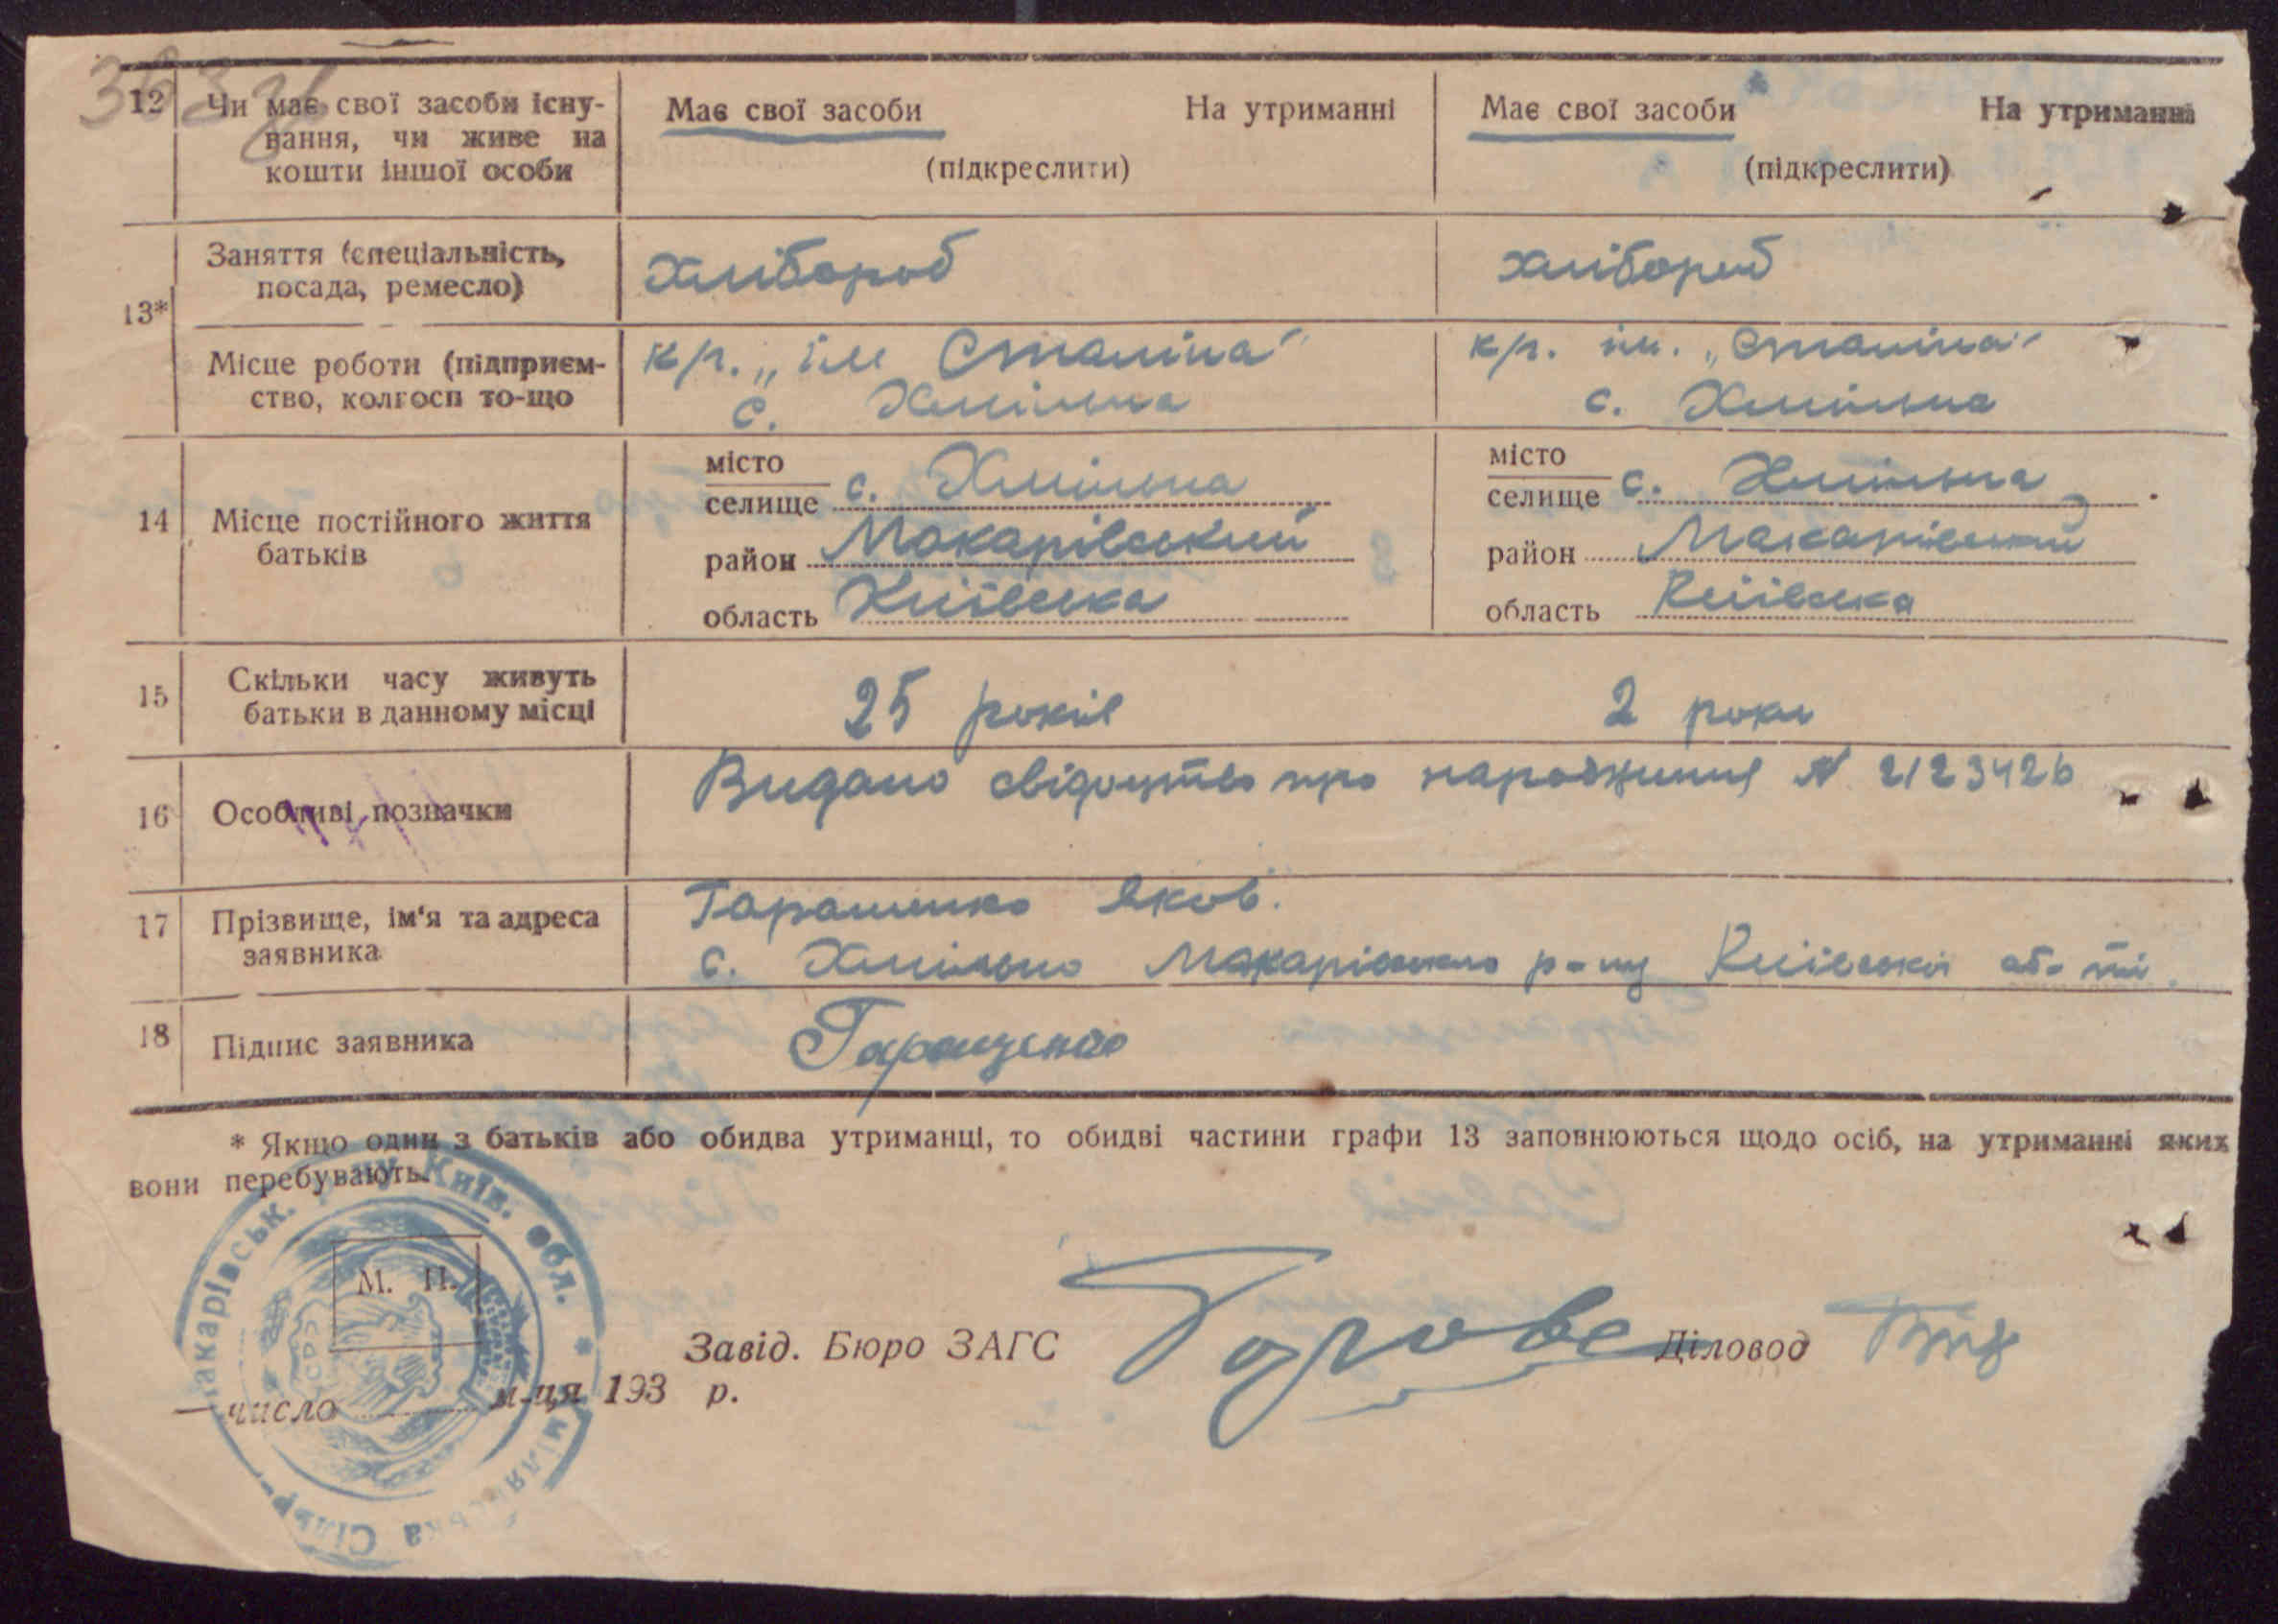 12 Чи має свої засоби існу-
вання, чи живе на
кошти іншої особи
Має свої засоби На утриманні
(підкреслити)
Має свої засоби На утриманні
(підкреслити)
13*
Заняття (спеціальність,
посада, ремесло)
хлібороб
хлібороб
Місце роботи (підприєм-
ство, колгосп то-що
кр. „ім Сталіна"
с. Хмільна
кр. ім. „Сталіна"
с. Хмільна
14 Місце постійного життя
батьків
місто
селище с. Хмільна
район Макарівський
область Київська
місто
селище с. Хмільна
район Макарівський
область Київська
15 Скільки часу живуть
батьки в данному місці
25 років
2 роки
16 Особливі позначки
Видано свідоцтво про народження № 2123426
17 Прізвище, ім'я та адреса
заявника
Гаращенко Яков.
с. Хмільна Макарівського р-ну Київської об-ті.
18 Підпис заявника
Гаращенко
* Якщо один з батьків або обидва утриманці, то обидві частини графи 13 заповнюються щодо осіб, на утриманні яких
вони перебувають.
Макарівськ. р-ну Київ. обл. *
М. П.
Завід. Бюро ЗАГС
Діловод
число м-ця 193 р.